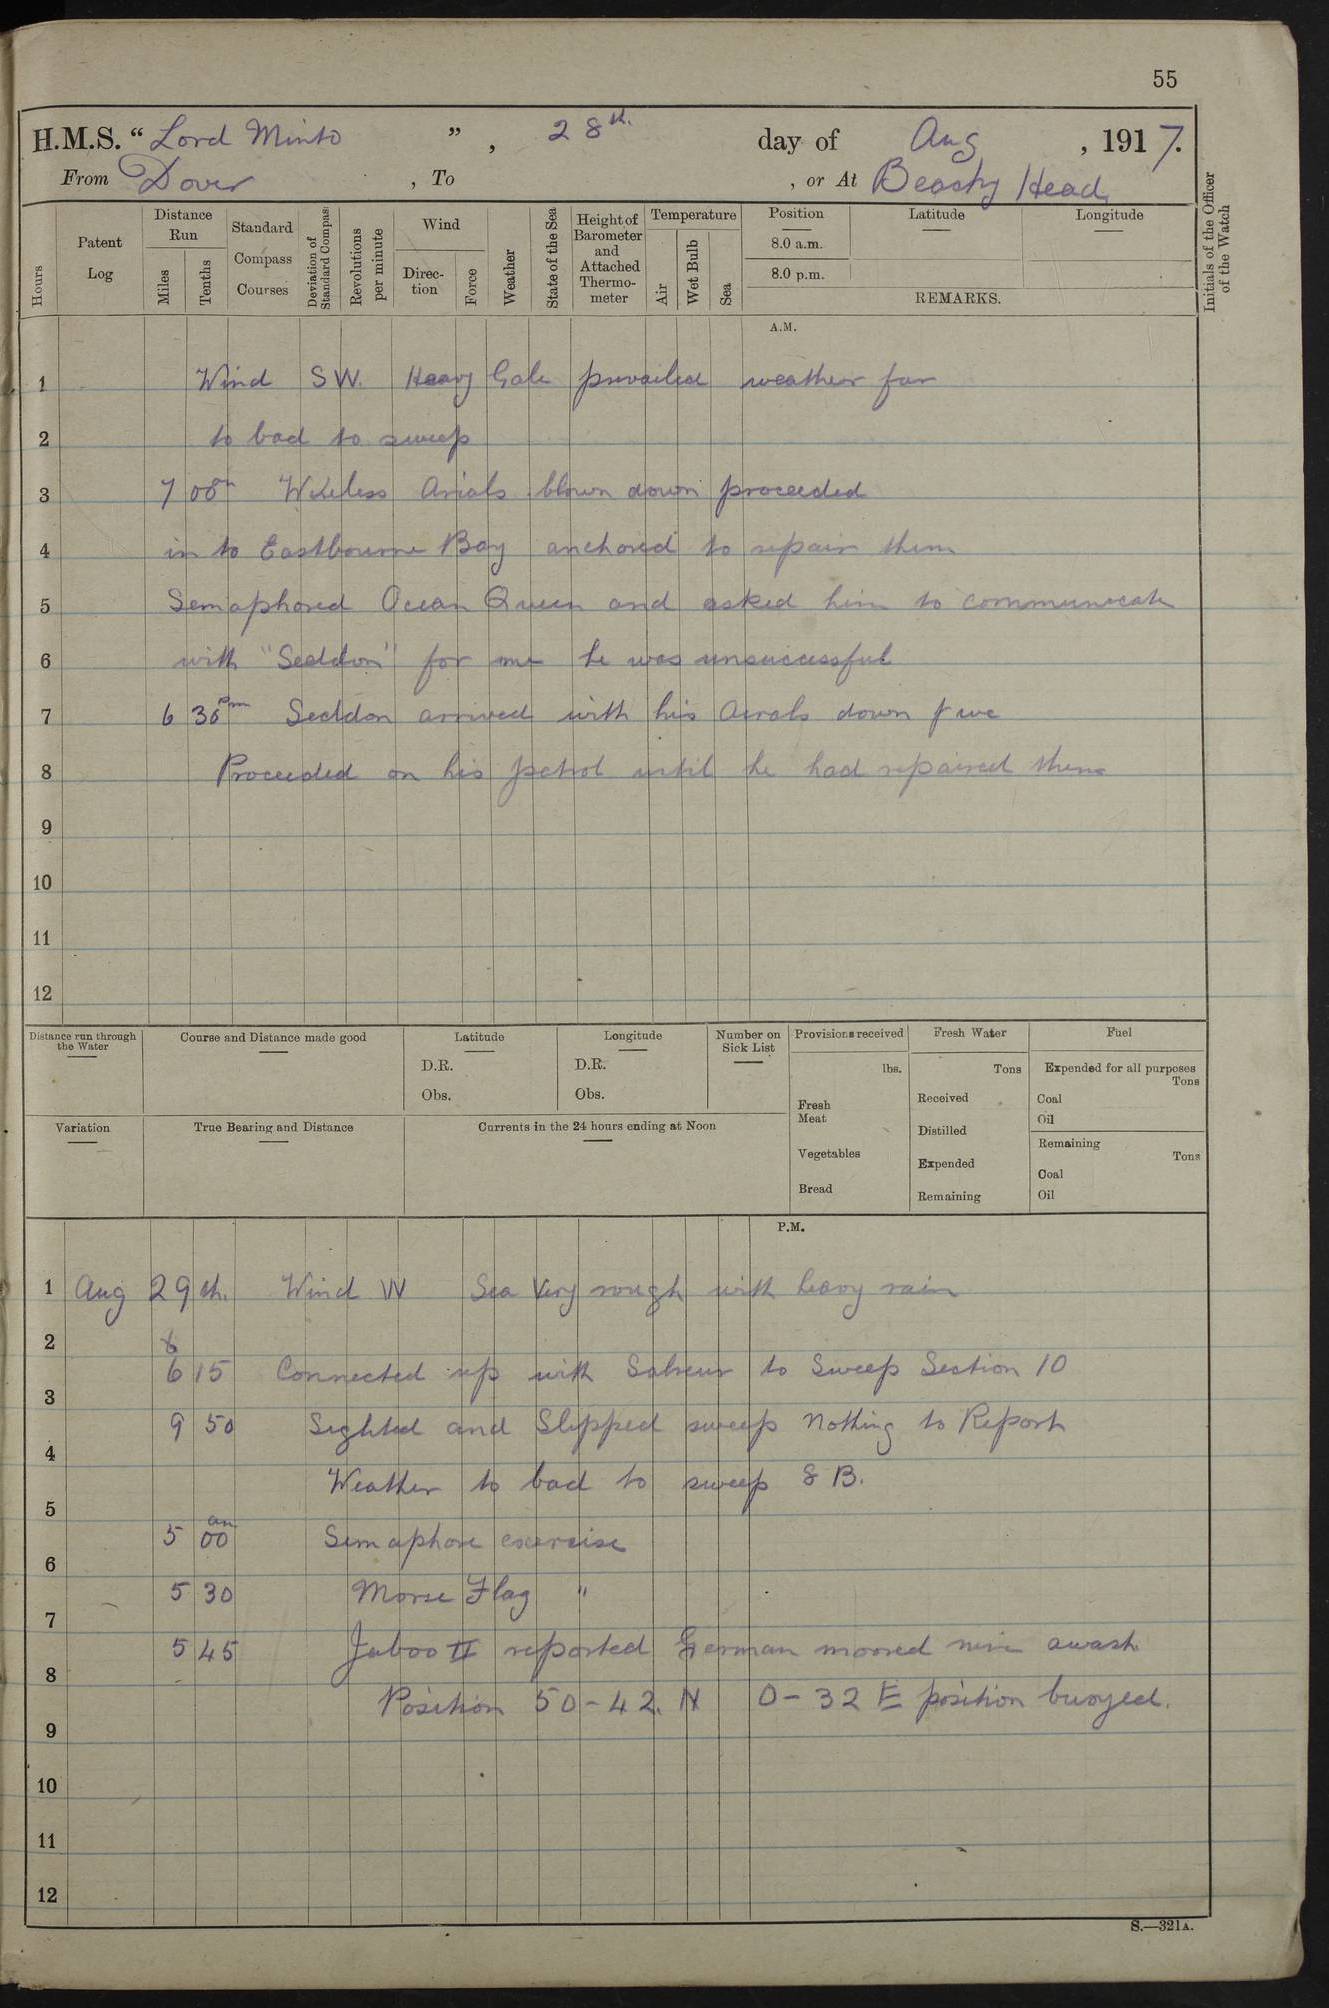 55
H.M.S. “ Lord Minto ” , 28th. day of Aug , 1917.
From Dover , To , or At Beachy Head,
Initials of the Officer of the Watch
Hours
Patent Log
Distance Run
Miles
Tenths
Standard Compass Courses
Deviation of Standard Compass
Revolutions per minute
Wind
Direc- tion
Force
Weather
State of the Sea
Height of Barometer and Attached Thermo- meter
Temperature
Air
Wet Bulb
Sea
Position Latitude Longitude
8.0 a.m.
8.0 p.m.
REMARKS.
A.M.
1 Wind SW. Heavy Gale prevailed weather far
2 to bad to sweep
3 7 08 Wireless Arials blown down proceeded
4 in to Eastbourne Bay anchored to repair them
5 Semaphored Ocean Queen and asked him to communicate
6 with "Seddon" for me he was unsuccessful
7 6 30pm Seddon arrived with his Airals down & we
8 Proceeded on his patrol until he had repaired them
9
10
11
12
Distance run through the Water
Course and Distance made good
Latitude
D.R.
Obs.
Longitude
D.R.
Obs.
Number on Sick List
Provisions received
lbs.
Fresh Meat
Vegetables
Bread
Fresh Water
Tons
Received
Distilled
Expended
Remaining
Fuel
Expended for all purposes
Tons
Coal
Oil
Remaining
Tons
Coal
Oil
Variation
True Bearing and Distance
Currents in the 24 hours ending at Noon
P.M.
1 Aug 29th. Wind W Sea Very rough with heavy rain
2
6 15 Connected up with to Sweep Section 10
3
9 50 Sighted and Slipped sweep Nothing to Report
4
Weather to bad to sweep 8 B.
5
5 00 am Semaphore exercise
6
5 30 Morse Flag "
7
5 45 Juboo II reported German moored mine awash
8
Position 50-42. N 0-32 E position buoyed.
9
10
11
12
S.—321A.